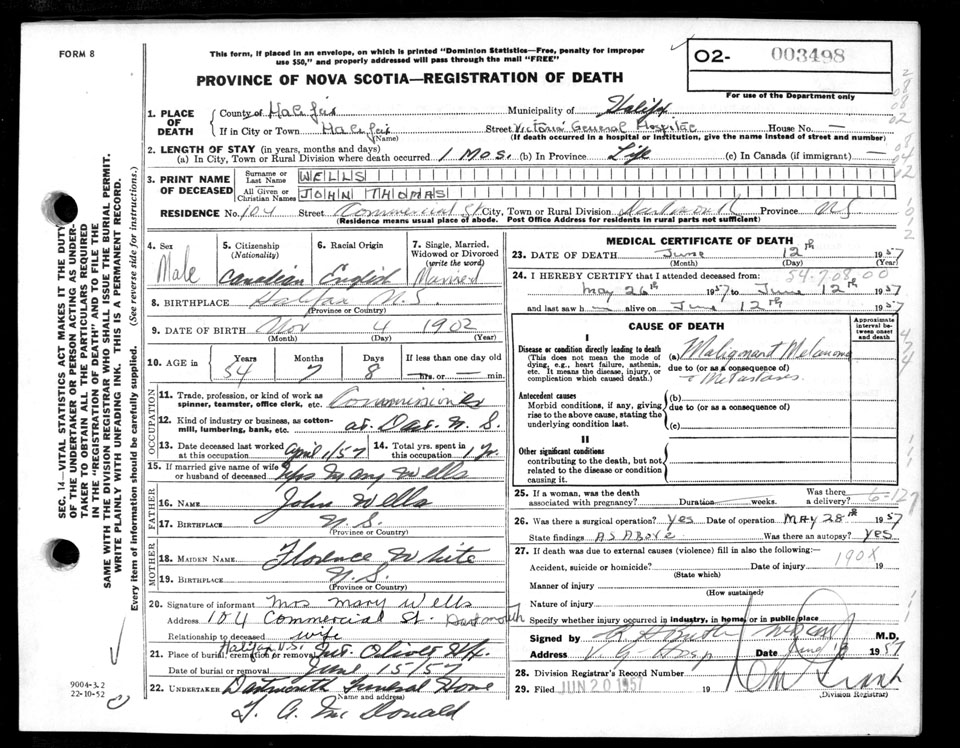 FORM 8
This form, if placed in an envelope, on which is printed "Dominion Statistics—Free, penalty for improper
use $50," and properly addressed will pass through the mail "FREE"
PROVINCE OF NOVA SCOTIA—REGISTRATION OF DEATH
02- 003498
For use of the Department only
SEC. 14—VITAL STATISTICS ACT MAKES IT THE DUTY
OF THE UNDERTAKER OR PERSON ACTING AS UNDER-
TAKER TO OBTAIN ALL THE PARTICULARS REQUIRED
IN THE "REGISTRATION OF DEATH" AND TO FILE THE
SAME WITH THE DIVISION REGISTRAR WHO SHALL ISSUE THE BURIAL PERMIT.
WRITE PLAINLY WITH UNFADING INK. THIS IS A PERMANENT RECORD.
Every item of information should be carefully supplied. (See reverse side for instructions.)
1. PLACE OF DEATH County of Halifax Municipality of Halifax
If in City or Town Halifax (Name) Street Victoria General Hospital House No. —
(If death occurred in a hospital or institution, give the name instead of street and number)
2. LENGTH OF STAY (in years, months and days)
(a) In City, Town or Rural Division where death occurred 1 Mos. (b) In Province Life (c) In Canada (if immigrant) —
3. PRINT NAME OF DECEASED Surname or Last Name WELLS
All Given or Christian Names JOHN THOMAS
RESIDENCE No. 104 Street Commercial St City, Town or Rural Division Dartmouth Province NS
(Residence means usual place of abode. Post Office Address for residents in rural parts not sufficient)
4. Sex Male
5. Citizenship (Nationality) Canadian
6. Racial Origin English
7. Single, Married, Widowed or Divorced (write the word) Married
8. BIRTHPLACE Halifax N.S.
(Province or Country)
9. DATE OF BIRTH Nov 4 1902
(Month) (Day) (Year)
10. AGE in Years 54 Months 7 Days 8 If less than one day old — hrs. or — min.
OCCUPATION
11. Trade, profession or kind of work as spinner, teamster, office clerk, etc. Commissioner
12. Kind of industry or business, as cotton-mill, lumbering, bank, etc. at Dar. N.S.
13. Date deceased last worked at this occupation April 1/57 14. Total yrs. spent in this occupation 1 yr.
15. If married give name of wife or husband of deceased Mrs Mary Wells
FATHER
16. NAME John Wells
17. BIRTHPLACE N.S.
(Province or Country)
MOTHER
18. MAIDEN NAME Florence White
19. BIRTHPLACE N.S.
(Province or Country)
20. Signature of informant Mrs Mary Wells
Address 104 Commercial St. Dartmouth
Relationship to deceased wife
21. Place of burial, cremation or removal Halifax N.S. Mt. Olivet Hfx.
Date of burial or removal June 15/57
22. UNDERTAKER Dartmouth Funeral Home
(Name and address)
T. A. McDonald
9004-3.2
22-10-52
MEDICAL CERTIFICATE OF DEATH
23. DATE OF DEATH June 12th 1957
(Month) (Day) (Year)
24. I HEREBY CERTIFY that I attended deceased from: 54-7.08.00
May 26th 1957 to June 12th 1957
and last saw h alive on June 12th 1957
CAUSE OF DEATH
Approximate interval between onset and death
I
Disease or condition directly leading to death
(This does not mean the mode of dying, e.g., heart failure, asthenia, etc. It means the disease, injury, or complication which caused death.)
(a) Malignant Melanoma
due to (or as a consequence of)
c̄ Metastases.
Antecedent causes
Morbid conditions, if any, giving rise to the above cause, stating the underlying condition last.
(b)
due to (or as a consequence of)
(c)
II
Other significant conditions
contributing to the death, but not related to the disease or condition causing it.
25. If a woman, was the death associated with pregnancy? Duration weeks. Was there a delivery? 6-127
26. Was there a surgical operation? Yes Date of operation May 28th 1957
State findings AS ABOVE Was there an autopsy? Yes
27. If death was due to external causes (violence) fill in also the following:—
Accident, suicide or homicide? (State which) Date of injury 190X 19
Manner of injury
(How sustained)
Nature of injury
Specify whether injury occurred in industry, in home, or in public place
Signed by M.D.
Address V.G. Hosp Date June 13 1957
28. Division Registrar's Record Number
29. Filed JUN 20 1957 19
(Division Registrar)